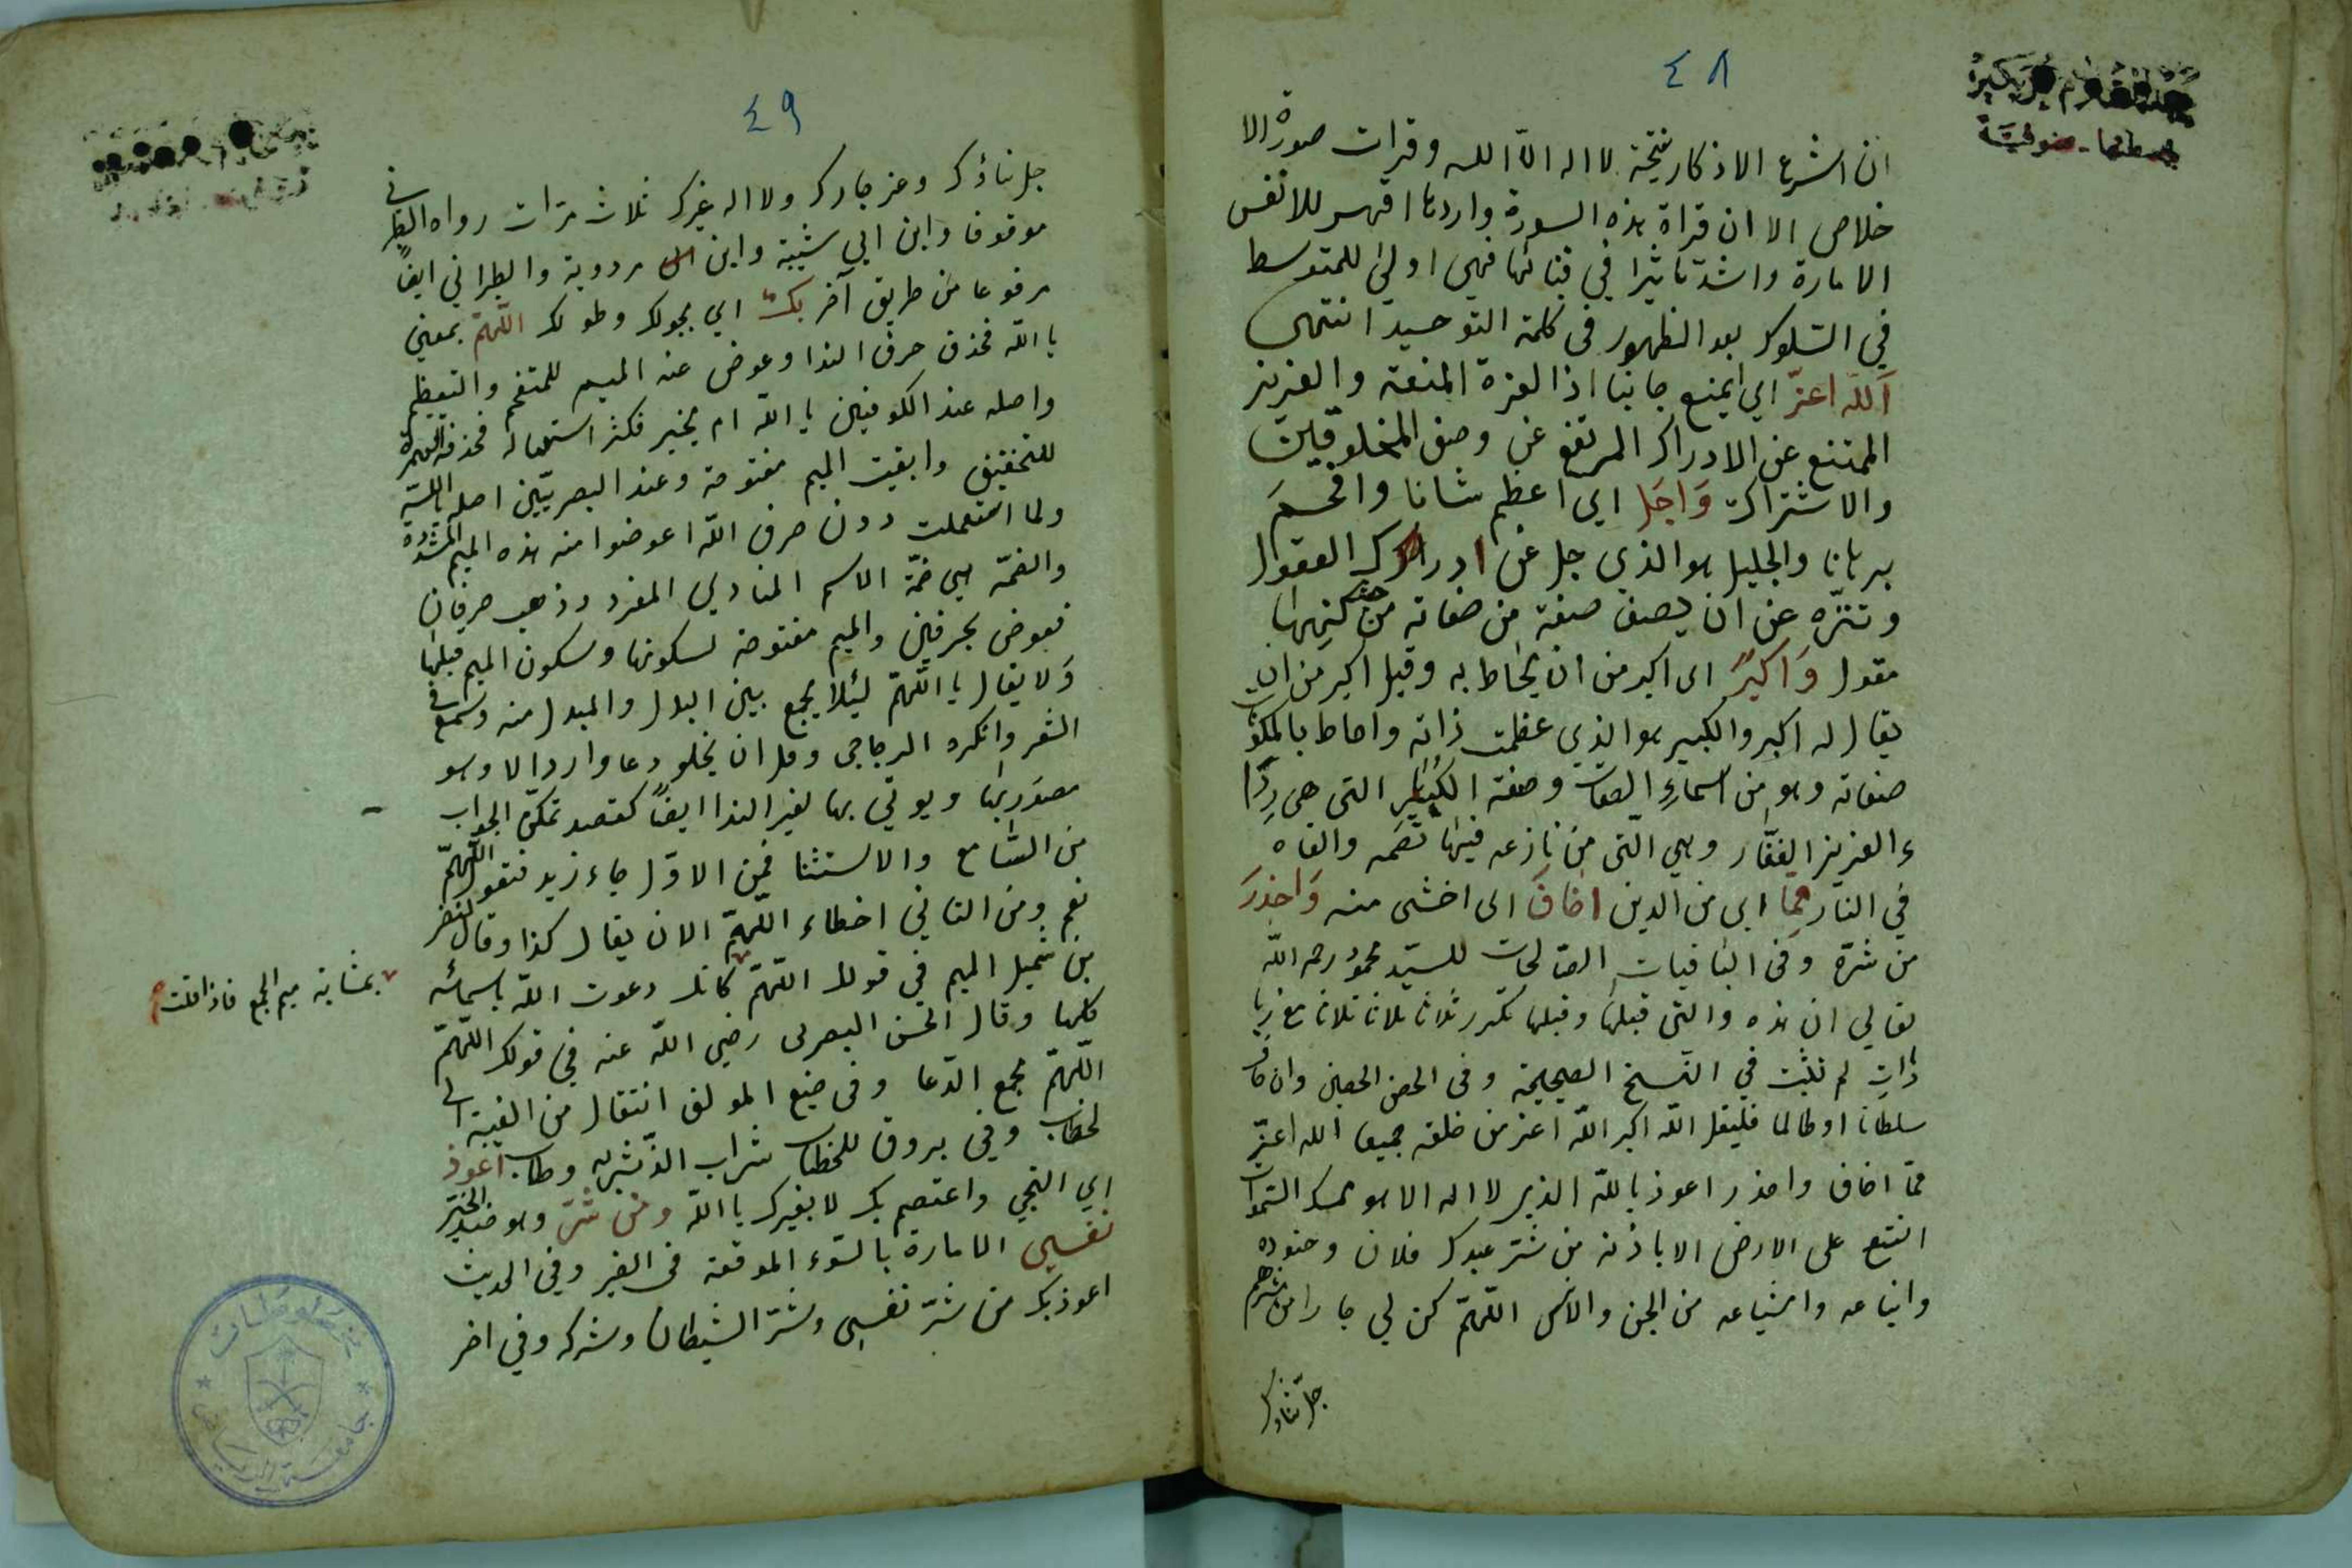 ٤٨
ان اسرع الاذكار نتيجة لا اله الا الله وقرات صورة الا
خلاص الا ان قراة هذه السورة وارد ها اقهر للانفس
الامارة واشد تاثيرا في قنائها فهي اولى للمتوسط
في السلوك بعد الظهور في كلمة التوحيد انتهى
اَللّه اعزّ اي امنع جانبا اذ العزة المنعة والعزيز
الممتنع عن الادراك المرتفع عن وصف المخلوقين
والاشتراك وَاجَل اي اعظم شانا وافخم
برهانا والجليل هو الذي جل عن ادراك العقول
وتنزه عن ان يصف صفة من صفاته من حيث كنهها
مقول وَاكبرُ اى اكبر من ان يحاط به وقيل اكبر من ان
يقال له اكبر والكبير هو الذي عظمت ذاته واحاط بالمكونات
صفاته وهو من اسماءِ الصفات وصفة الكبر التى هى رِدَا
ء العزيز الغفّار وهي التى من نازعه فيها قصمه والقاه
في النار مما اى من الدين اخاف اى اخشى منه وَاحذرَ
من شره وفى الباقيات الصالحات للسيّد محمود رحمه الله
تعالي ان هذه والتى قبلها وقبلها تكرر ثلاثا ثلاثا ثلاثا مع زيا
دات لم تثبت في النسخ الصحيحة وفى الحصن الحصين وان خاف
سلطانا او ظالما فليقل الله اكبر الله اعز من خلقه جميعا الله اعزّ
ممّا اخاف واحذر اعوذ بالله الذى لا اله الا هو ممسك السّموات
ان تقع على الارض الا باذنه من شر عبدك فلان وجنوده
واتباعه واشياعه من الجن والانس اللّهمّ كن لي جارا من شرهم
جل ثناؤك
٤٩
جل ثناؤك وعز جارك ولا اله غيرك ثلاث مرّات رواه الطبرانى
موقوفا وابن ابي شيبة وابن مردوية والطبراني ايضًا
مرفوعا من طريق آخر بك اي بحولك وطولك اللّهمّ بمعنى
يا الله فحذف حرف الندا وعوض عنه الميم للتفخم والتعظيم
واصله عند الكوفيين يا الله ام بخير فكثر استعماله فحذفت الهمزة
للتخفيف وابقيت الميم مفتوحة وعند البصريّين اصله يا الله
ولما استعملت دون حرف الندا عوضوا منه هذه الميم المشدّدة
والضمّة هي ضمّة الاسم المنادي المفرد وذهب حرفان
فعوض بحرفين والميم مفتوحة لسكونها وسكون الميم قبلها
وَلا يقال يا اللّهمّ لئلا يجمع بين البدل والمبدل منه وسمع فى
الشعر وانكره الزجاجى وقل ان يخلو دعا وارد الا وهو
مصدّر بها ويوتي بها لغير الندا ايضًا كقصد تمكن الجواب
من السّامع والاستثنا فمن الاوّل جاء زيد فتقول اللّهمّ
نعم ومن الثاني اخطاء اللّهمّ الا ان يقال كذا وقال النضر
بن شميل الميم في قولك اللّهمّ كانك دعوت الله باسمائه
كلها وقال الحسن البصرى رضي الله عنه في قولك اللّهمّ
اللّهمّ مجمع الدّعا وفى صنيع المولف انتقال من الغيبة الى
لخطاب وفي بروق للخطاب شراب الذّ شربه وطاب اعوذ
اي التجي واعتصم بك لا بغيرك يا الله ومن شرّ وهو ضد الخير
نفسي الامارة بالسّوء الموقعة فى الضير وفي الحديث
اعوذ بك من شرّ نفسى وشرّ الشيطان وشركه وفي اخر
بمثابة ميم الجمع فاذا قلت
جامعة الرياض